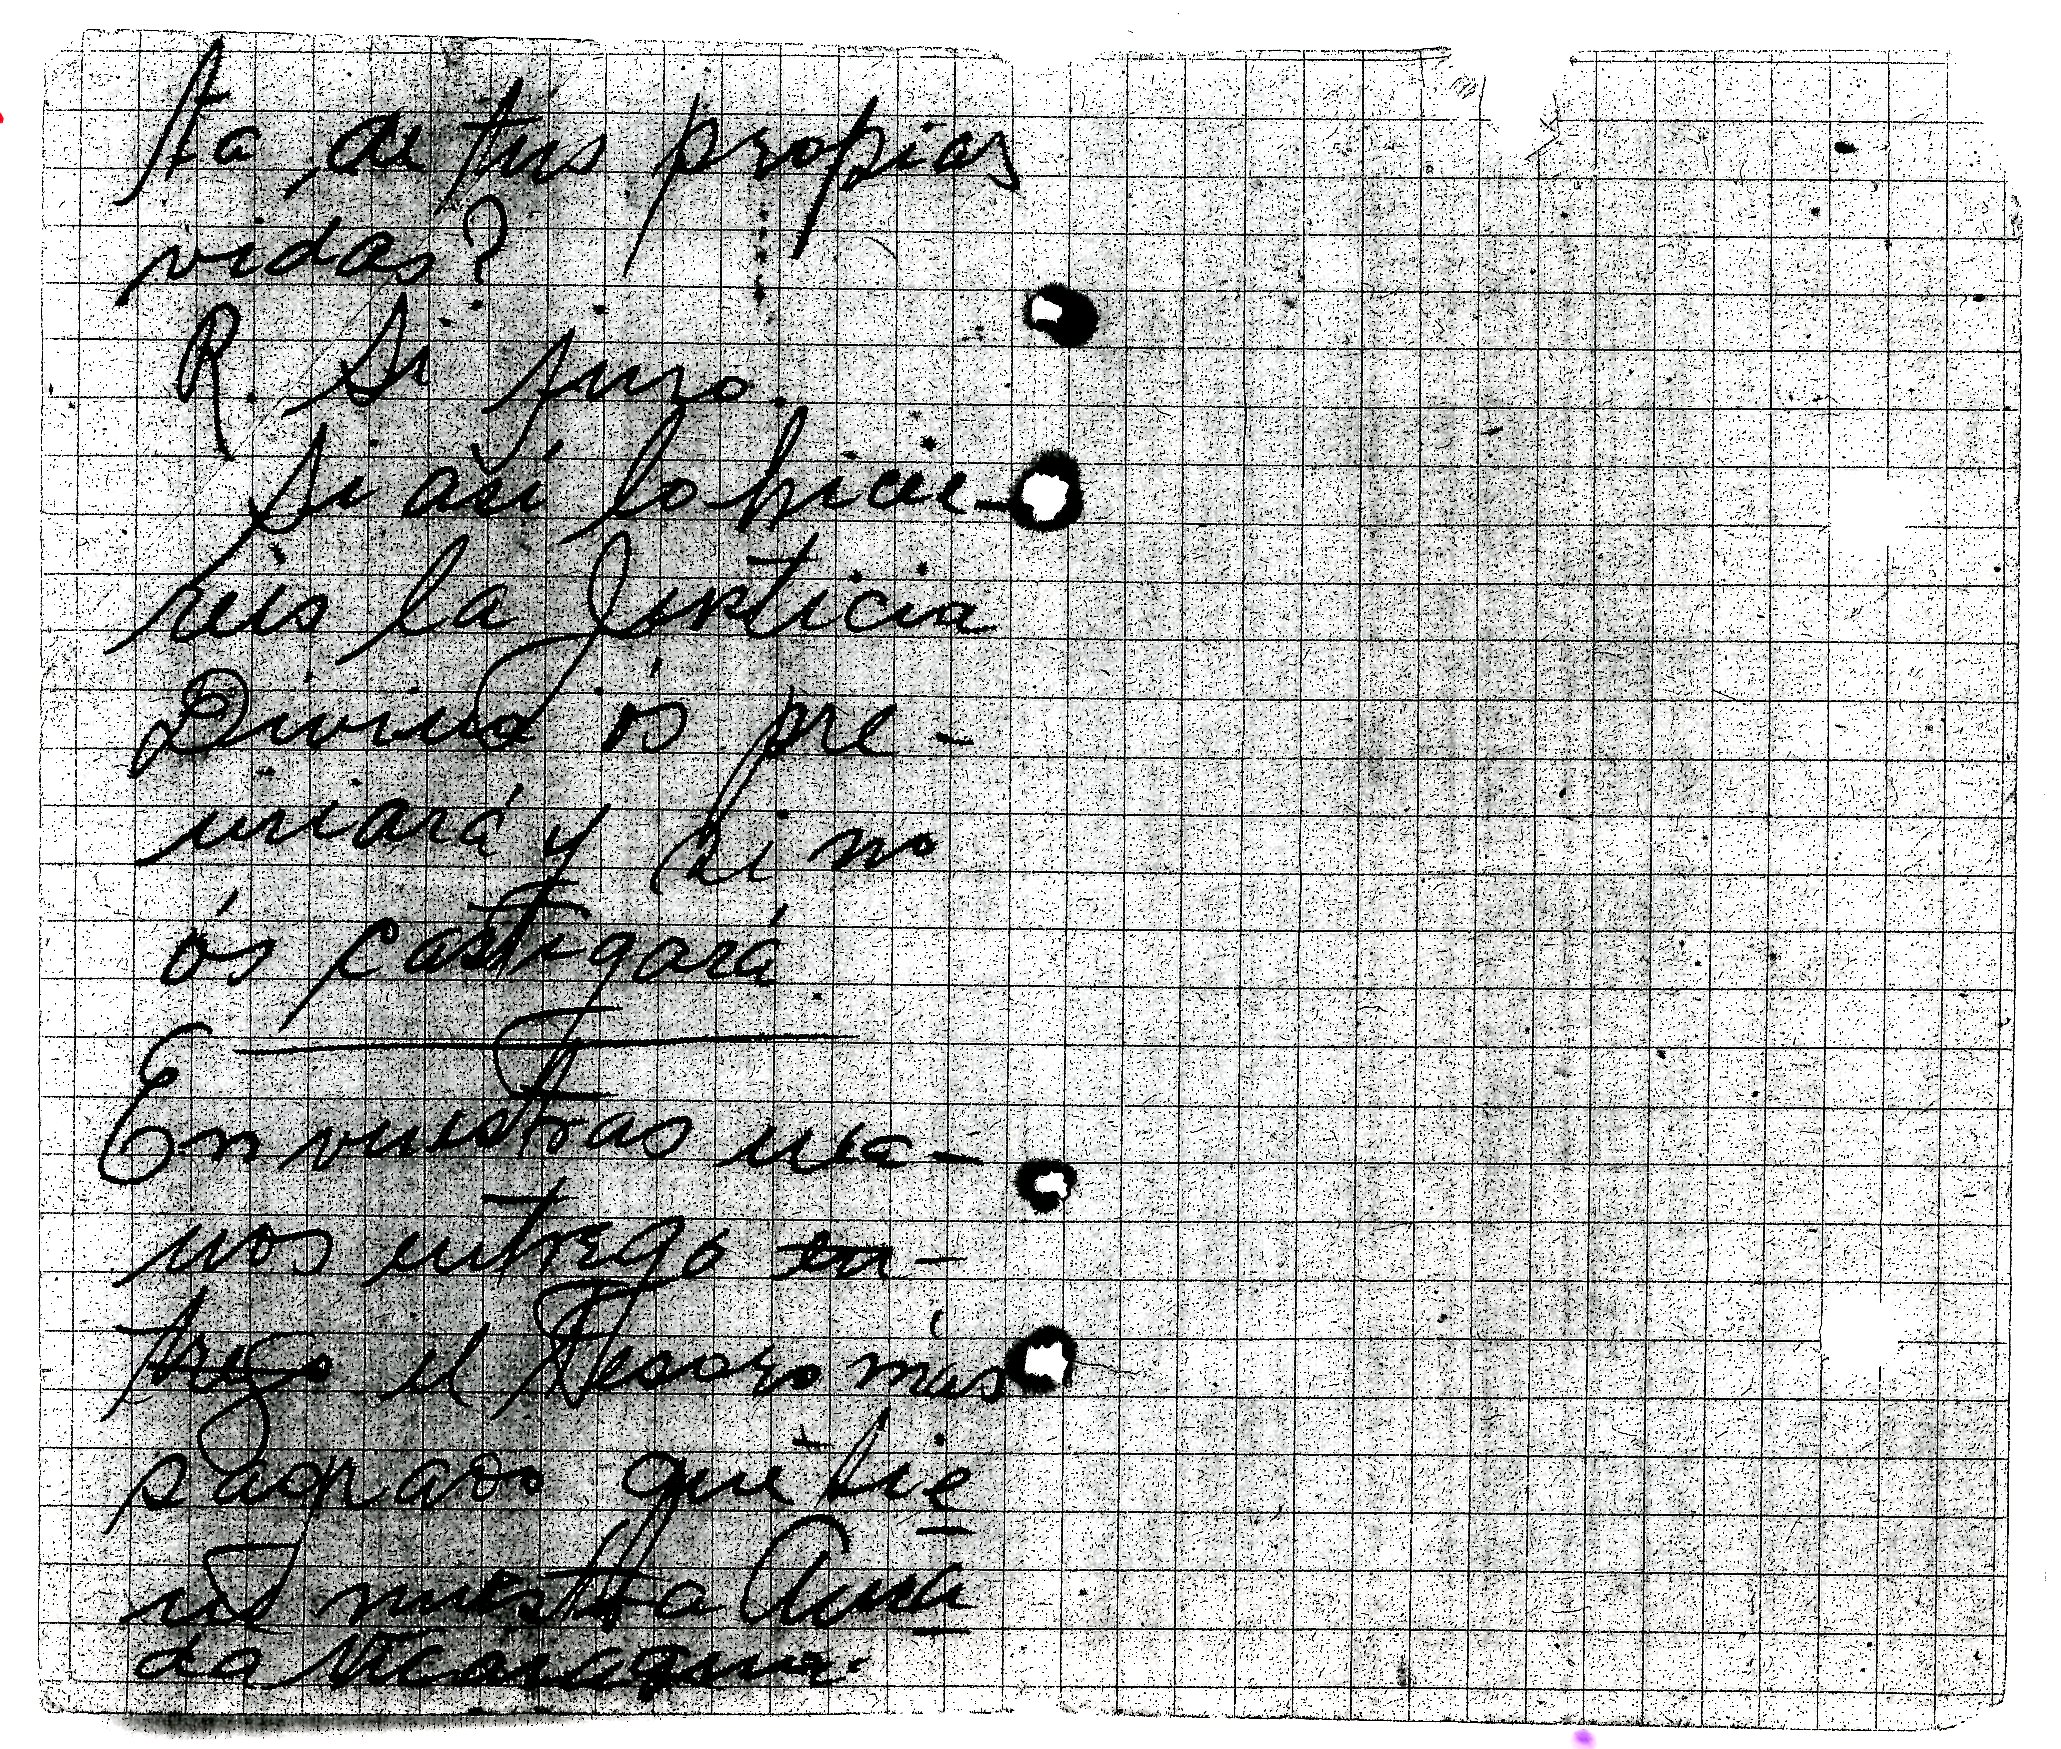 ta, de tus propias
vidas?
R. Si juro.
Si así lo hicie-
reis la Justicia
Divina ós pre-
miará y si no
ós castigará
En vuestras ma-
nos entrego en-
trego el Tesoro más
sagrado que tie
ne nuestra Ama
da Nicaragua.